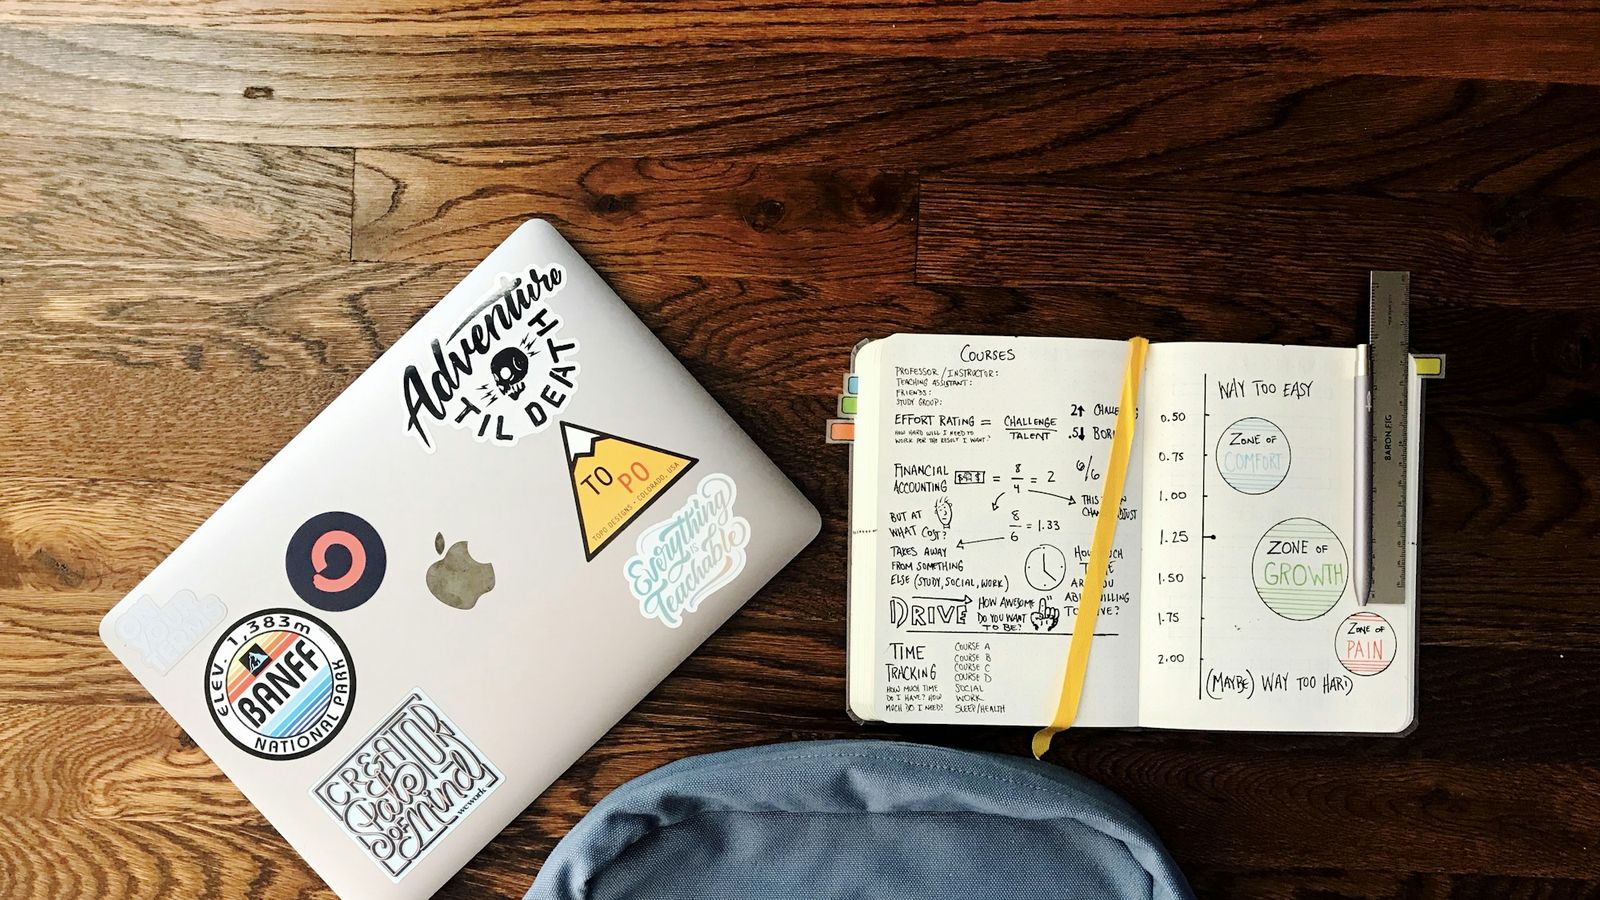 Adventure
TIL DEATH
TO PO
TOPO DESIGNS • COLORADO, USA
Everything
IS
Teachable
ELEV. 1,383m
BANFF
NATIONAL PARK
CREATOR
State
OF Mind
wework
COURSES
PROFESSOR/INSTRUCTOR:
TEACHING ASSISTANT:
FRIENDS:
STUDY GROUP:
EFFORT RATING = CHALLENGE
TALENT
HOW HARD WILL I NEED TO
WORK FOR THE RESULT I WANT?
2↑
.5↓
FINANCIAL
ACCOUNTING = 8/4 = 2
6/6
THIS
BUT AT
WHAT COST?
8/6 = 1.33
TAKES AWAY
FROM SOMETHING
ELSE (STUDY, SOCIAL, WORK)
DRIVE
HOW AWESOME
DO YOU WANT
TO BE?
TIME
TRACKING
HOW MUCH TIME
DO I HAVE? HOW
MUCH DO I NEED?
COURSE A
COURSE B
COURSE C
COURSE D
SOCIAL
WORK
SLEEP/HEALTH
WAY TOO EASY
0.50
ZONE OF
COMFORT
0.75
1.00
1.25
ZONE OF
GROWTH
1.50
1.75
ZONE OF
PAIN
2.00
(MAYBE) WAY TOO HARD
BARON FIG